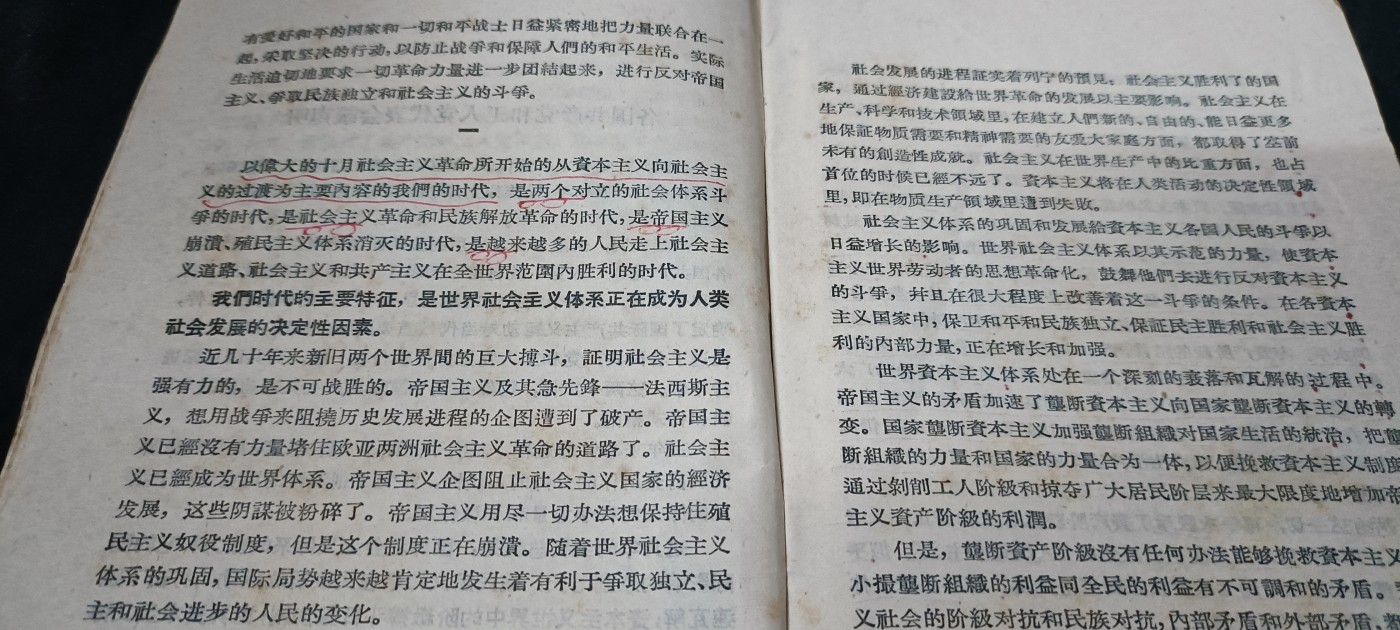 有爱好和平的国家和一切和平战士日益紧密地把力量联合在一
起,采取坚决的行动,以防止战爭和保障人們的和平生活。实际
生活迫切地要求一切革命力量进一步团結起来,进行反对帝国
主义、爭取民族独立和社会主义的斗爭。
一
以偉大的十月社会主义革命所开始的从資本主义向社会主
义的过渡为主要內容的我們的时代,是两个对立的社会体系斗
爭的时代,是社会主义革命和民族解放革命的时代,是帝国主义
崩潰、殖民主义体系消灭的时代,是越来越多的人民走上社会主
义道路、社会主义和共产主义在全世界范圍內胜利的时代。
我們时代的主要特征,是世界社会主义体系正在成为人类
社会发展的决定性因素。
近几十年来新旧两个世界間的巨大搏斗,証明社会主义是
强有力的,是不可战胜的。帝国主义及其急先鋒——法西斯主
义,想用战爭来阻撓历史发展进程的企图遭到了破产。帝国主
义已經沒有力量堵住欧亚两洲社会主义革命的道路了。社会主
义已經成为世界体系。帝国主义企图阻止社会主义国家的經济
发展,这些阴謀被粉碎了。帝国主义用尽一切办法想保持住殖
民主义奴役制度,但是这个制度正在崩潰。随着世界社会主义
体系的巩固,国际局势越来越肯定地发生着有利于爭取独立、民
主和社会进步的人民的变化。
社会发展的进程証实着列宁的預見,社会主义胜利了的国
家,通过經济建設給世界革命的发展以主要影响。社会主义在
生产、科学和技术領域里,在建立人們新的、自由的、能日益更多
地保証物质需要和精神需要的友爱大家庭方面,都取得了空前
未有的創造性成就。社会主义在世界生产中的比重方面,也占
首位的时候已經不远了。資本主义将在人类活动的决定性領域
里,即在物质生产領域里遭到失敗。
社会主义体系的巩固和发展給資本主义各国人民的斗爭以
日益增长的影响。世界社会主义体系以其示范的力量,使資本
主义世界劳动者的思想革命化,鼓舞他們去进行反对資本主义
的斗爭,幷且在很大程度上改善着这一斗爭的条件。在各資本
主义国家中,保卫和平和民族独立、保証民主胜利和社会主义胜
利的內部力量,正在增长和加强。
世界資本主义体系处在一个深刻的衰落和瓦解的过程中。
帝国主义的矛盾加速了壟断資本主义向国家壟断資本主义的轉
变。国家壟断資本主义加强壟断組織对国家生活的統治,把壟
断組織的力量和国家的力量合为一体,以便挽救資本主义制度
通过剝削工人阶級和掠夺广大居民阶层来最大限度地增加帝
主义資产阶級的利潤。
但是,壟断資产阶級沒有任何办法能够挽救資本主义
小撮壟断組織的利益同全民的利益有不可調和的矛盾。
义社会的阶級对抗和民族对抗,內部矛盾和外部矛盾,